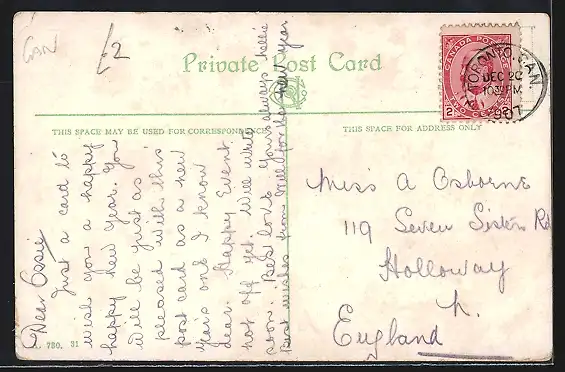 Can
£2
Private Post Card
CANADA POSTAGE
2 CENTS
TORONTO, CAN.
DEC 20
10 PM
1907
THIS SPACE MAY BE USED FOR CORRESPONDENCE
THIS SPACE FOR ADDRESS ONLY
Dear Ossie
Just a card to
wish you a happy
happy New Year. You
will be just as
pleased with this
post card as a new
years one I know
dear. Happy Event
not off yet. Will write
soon. Best love Yours always Nellie
Best wishes from Will for the New Year
Miss A Osborne
119 Seven Sisters Rd
Holloway
N.
England
A. 750. 31